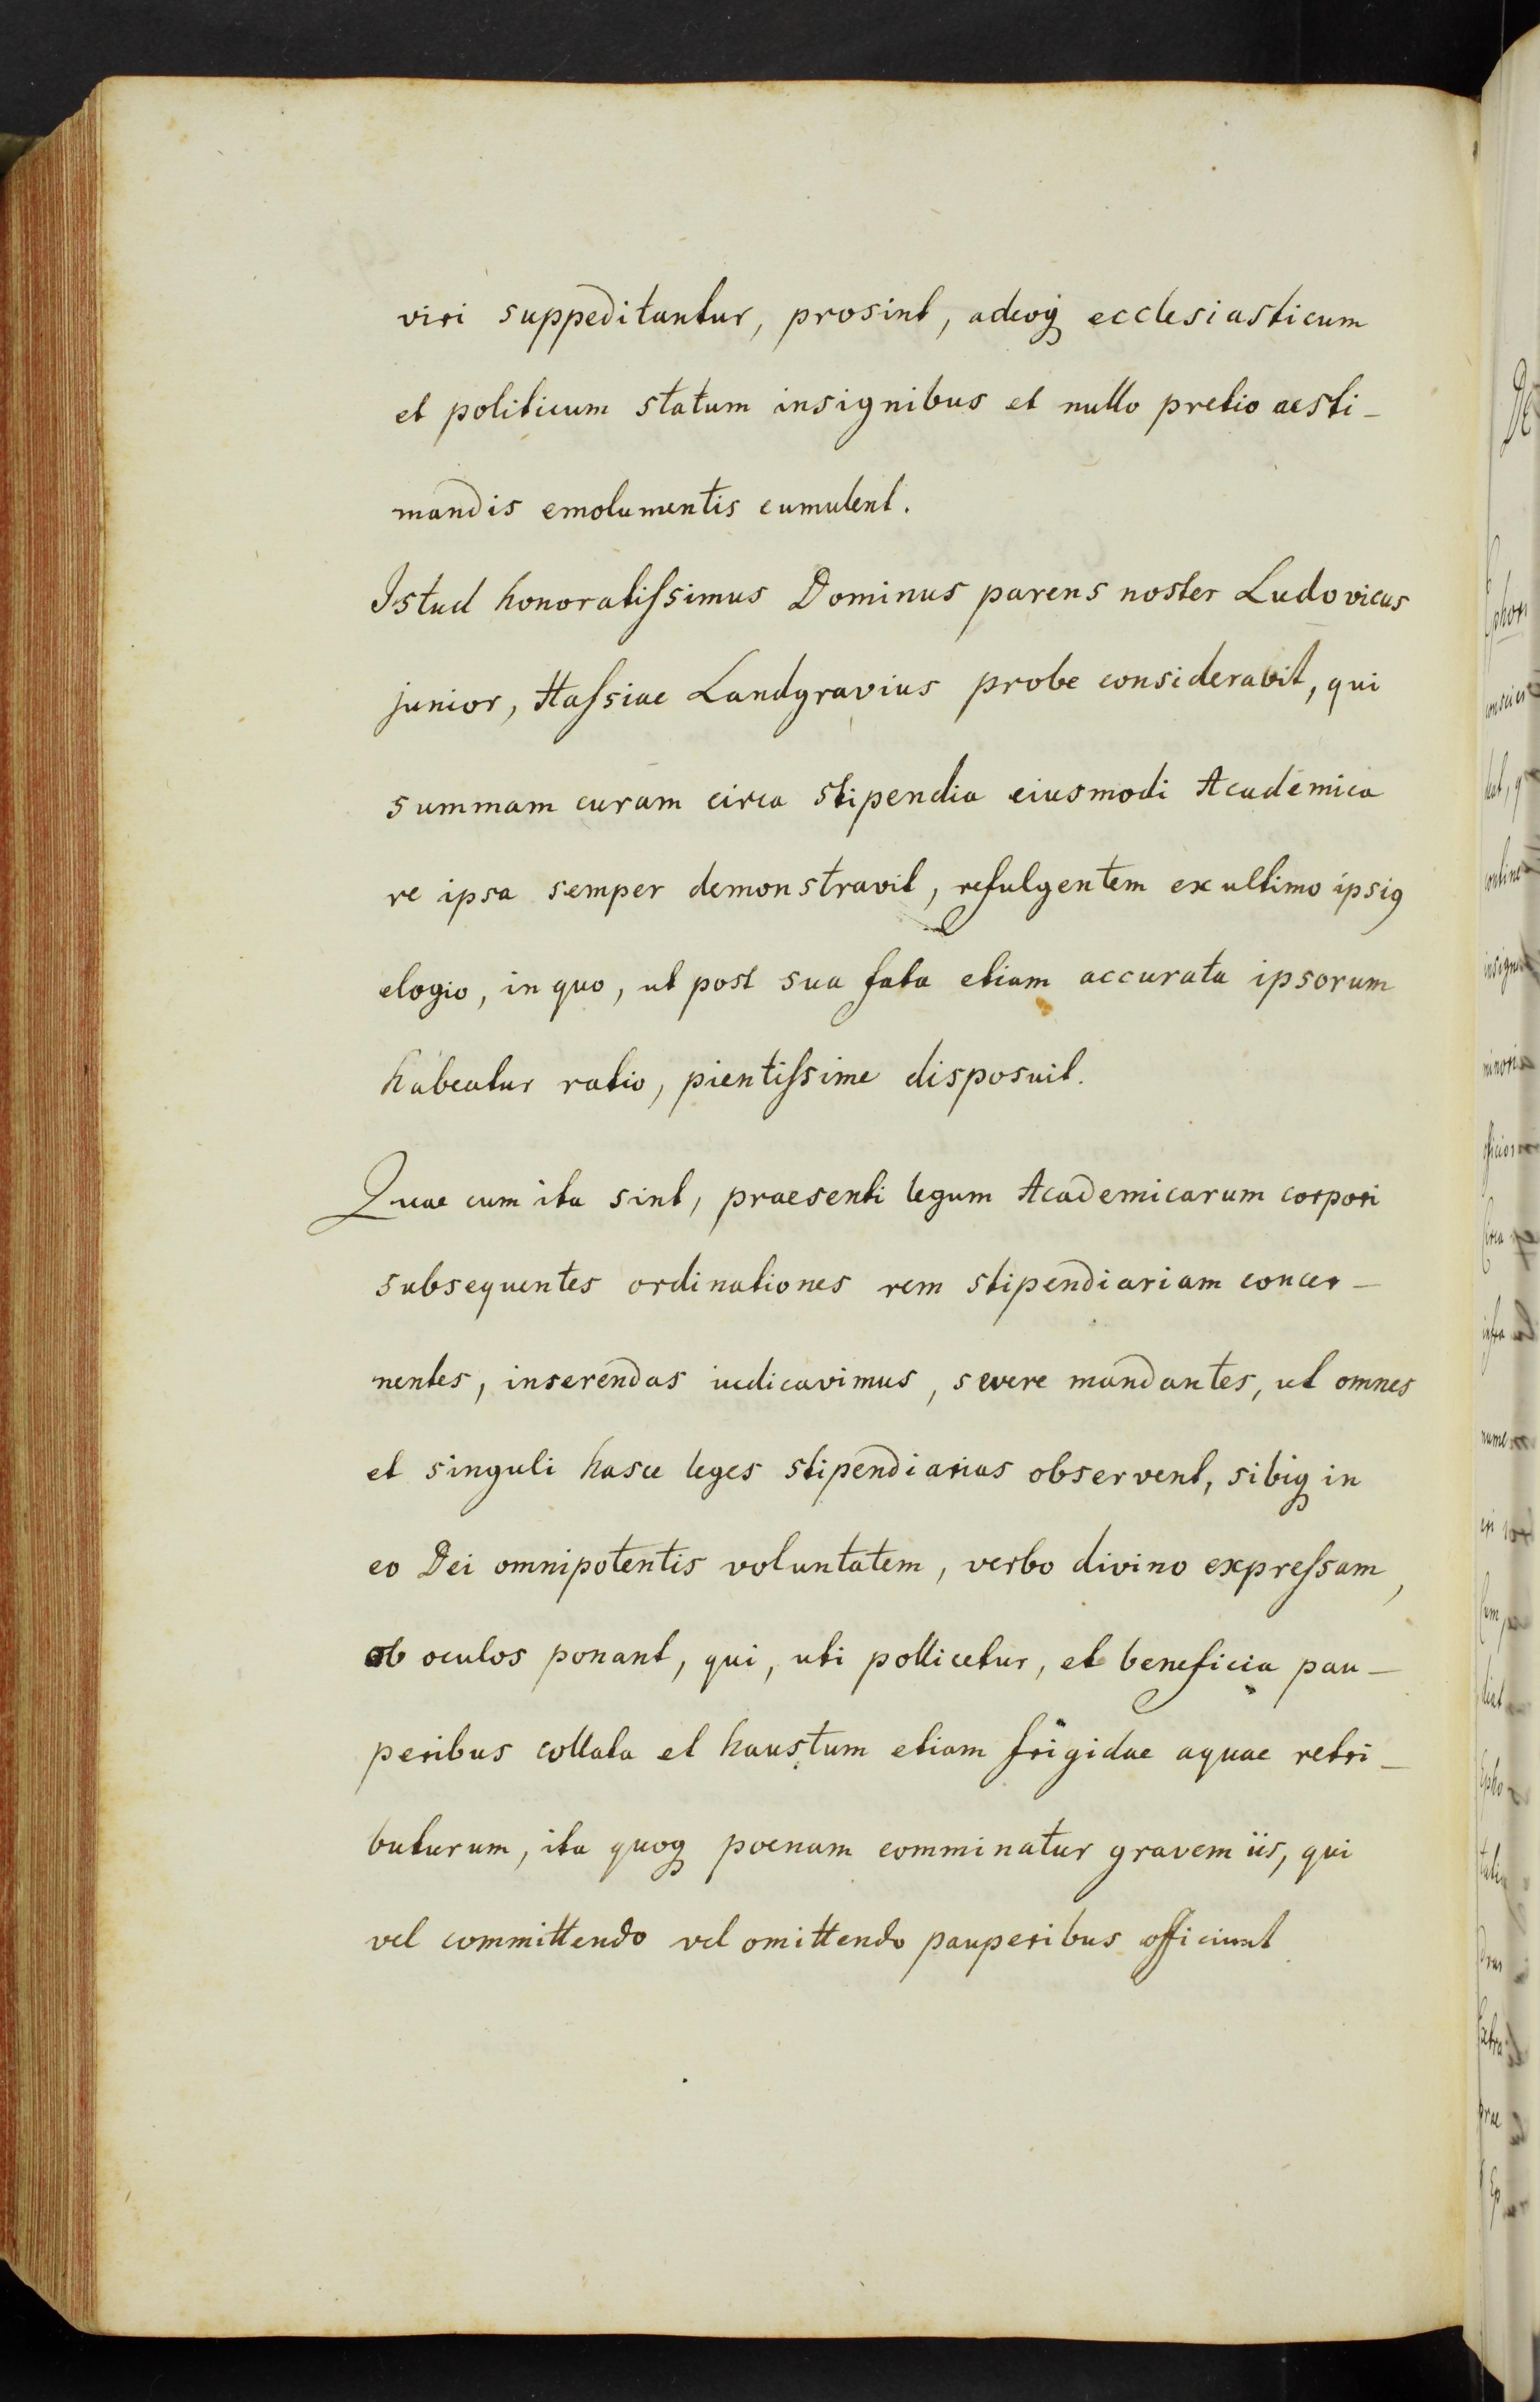 viri suppeditantur, prosint, adeoq; ecclesiasticum
et politicum statum insignibus et nullo pretio aesti-
mandis emolumentis cumulent.
Istud honoratiſsimus Dominus parens noster Ludovicus
junior, Haſsiae Landgravius probe consideravit, qui
summam curam circa stipendia eiusmodi Academica
re ipsa semper demonstravit, refulgentem ex ultimo ipsiꝰ
elogio, in quo, ut post sua fata etiam accurata ipsorum
habeatur ratio, pientiſsime disposuit.
Quae cum ita sint, praesenti legum Academicarum corpori
subsequentes ordinationes rem stipendiariam concer-
nentes, inserendas iudicavimus, severe mandantes, ut omnes
et singuli hasce leges stipendiarias observent, sibiq; in
eo Dei omnipotentis voluntatem, verbo divino expreſsam,
ob oculos ponant, qui, uti pollicetur, et beneficia pau-
peribus collata et haustum etiam frigidae aquae retri-
buturum, ita quoq; poenam comminatur gravem iis, qui
vel committendo vel omittendo pauperibus officiunt